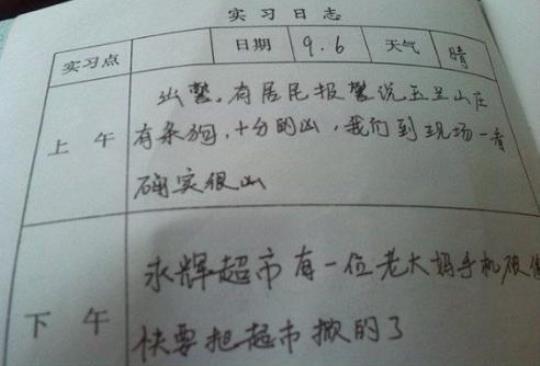 实习日志
实习点 日期 9.6 天气 晴
上午
出警。有居民报警说五里山庄
有条狗，十分的凶，我们到现场一看
确实很凶
下午
永辉超市有一位老大妈手机被偷
快要把超市掀的了